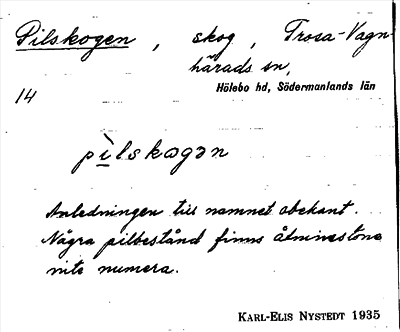 Pilskogen, skog, Trosa-Vagn-
härads sn,
Hölebo hd, Södermanlands län
14
pìlskogən
Anledningen till namnet obekant.
Några pilbestånd finns åtminstone
inte numera.
KARL-ELIS NYSTEDT 1935